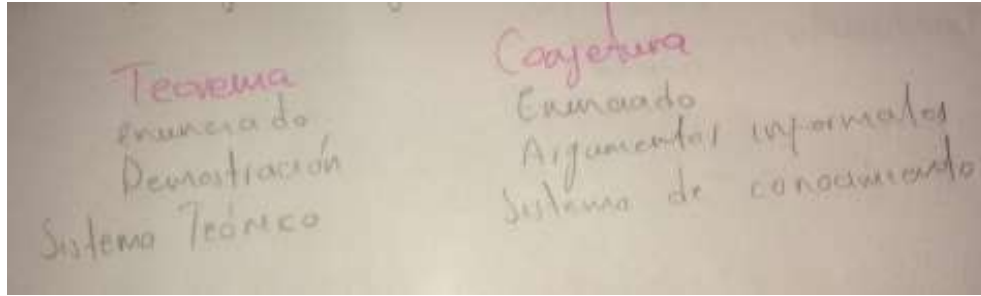 Teorema
enunciado
Demostración
Sistema Teórico
Conjetura
Enunciado
Argumentos informales
Sistema de conocimiento